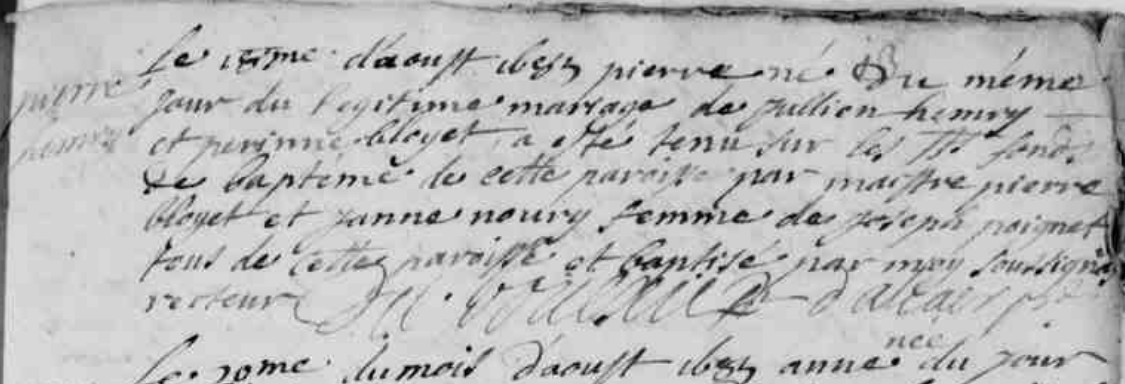 Le d'aoust pierre né du méme
pierre
jour du legitime mariage de jullien henry
henry
et perinne bloyet, a esté tenu sur les fonds
de baptéme de cette paroisse par maistre pierre
bloyet et janne noury femme de joseph poignet
tous de cette paroisse et baptisé par moy soussigné
recteur
née
Le du mois d'aoust anne du jour